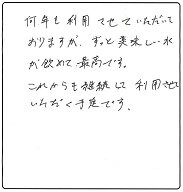 何年も利用させていただいて
おりますが、ずっと美味しい水
が飲めて最高です。
これからも継続して利用させ
いただく予定です。